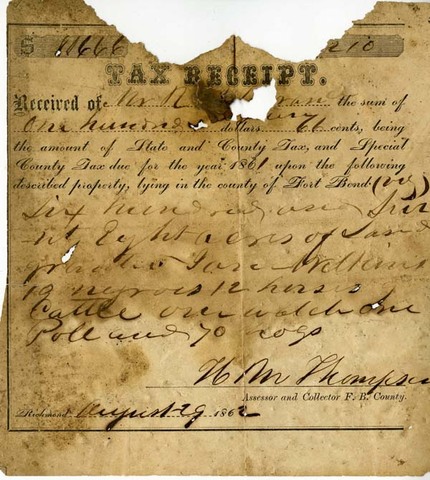 $ 11666 210
TAX RECEIPT.
Received of Mr the sum of
One hundred dollars 61 cents, being
the amount of State and County Tax, and Special
County Tax due for the year 1861 upon the following
described property, lying in the county of Fort Bend (viz)
Six hundred and
Eight acres of Land
Jane Wilkins
19 negroes 12 horses
Cattle one watch one
Poll and 70 hogs
H M Thompson
Assessor and Collector F. B. County.
Richmond August 29 1862